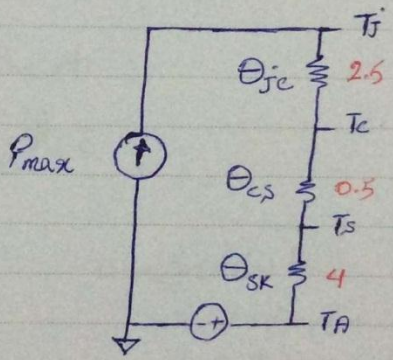 Tj
θjc 2.5
Tc
Pmax
θcs 0.5
Ts
θSK 4
- +
TA